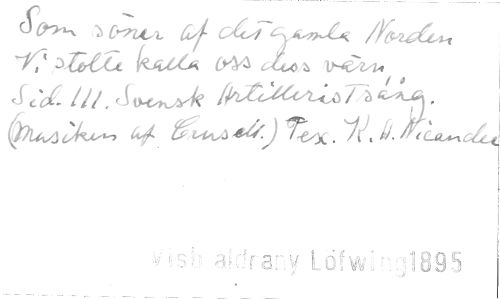 Som söner af det gamla Norden
Vi stolte kalla oss dess värn
Sid. 111. Svensk Artilleristsång.
(Musiken af Crusell.) Tex. K. A. Nicander
vish aldrany Löfwing 1895